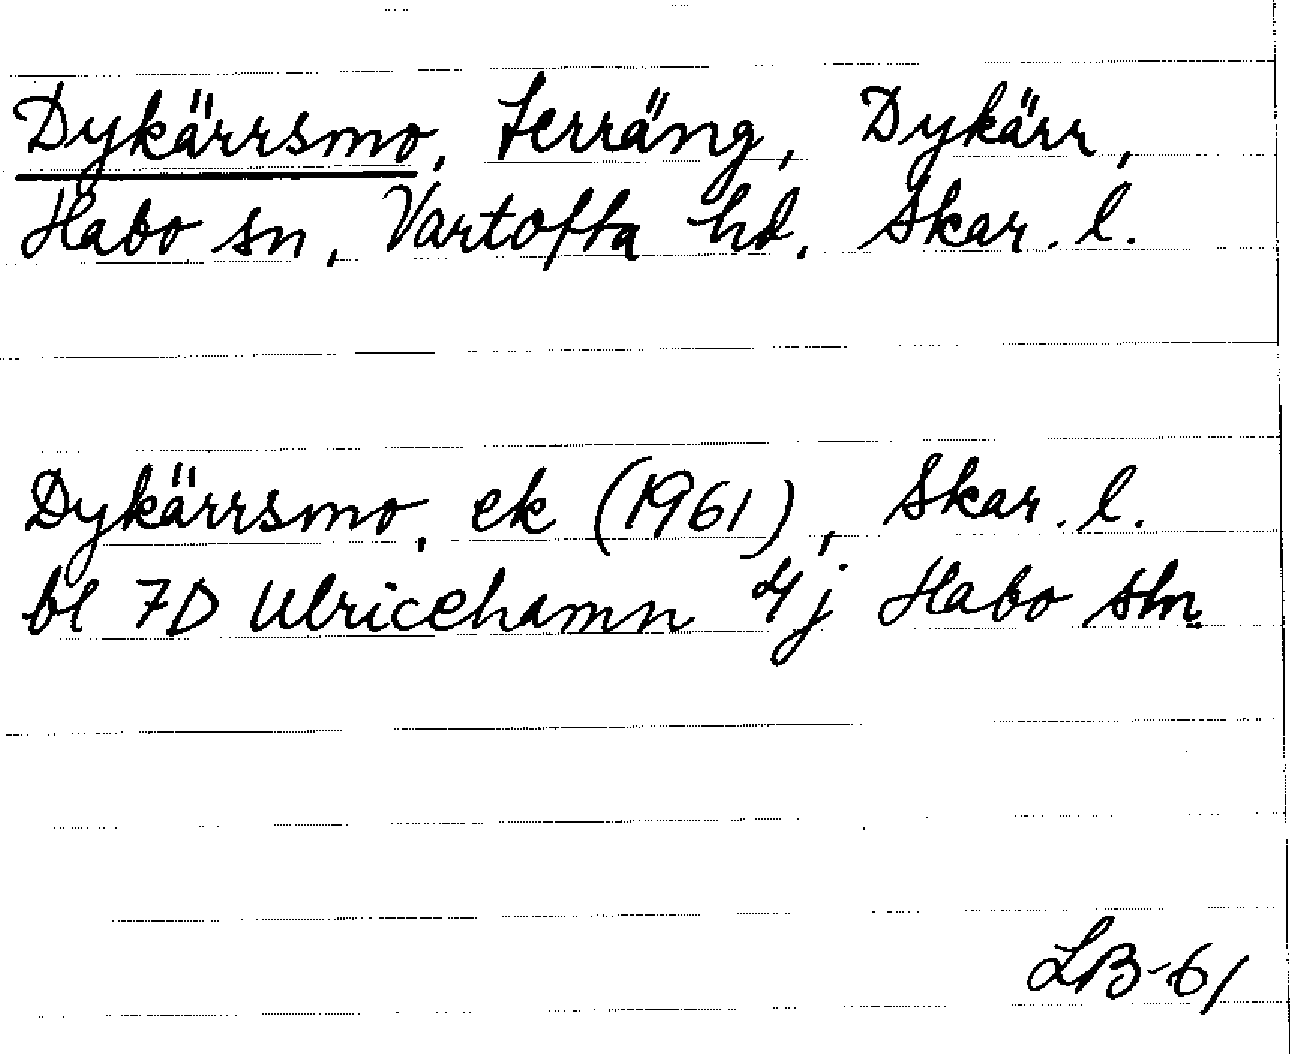 Dykärrsmo, terräng, Dykärr,
Habo sn, Vartofta hd. Skar. l.
Dykärrsmo, ek (1961), Skar. l.
bl 7D Ulricehamn 4j Habo shn.
LB-61